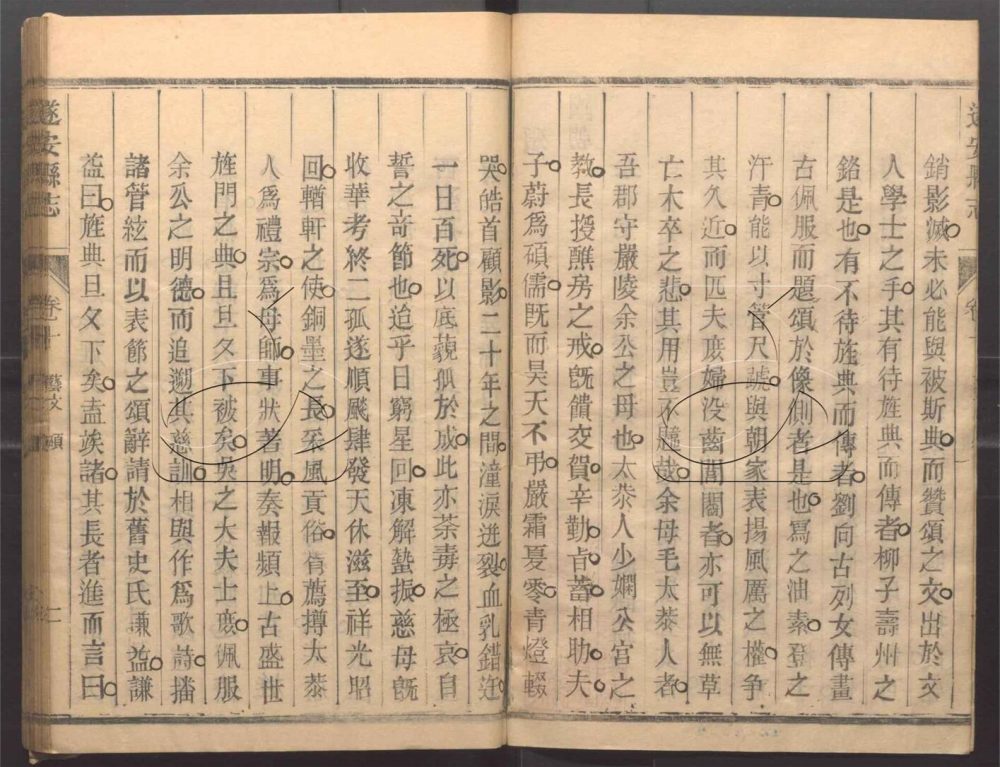 遂安縣志
銷影滅未必能與被斯典而贊頌之文出於文
人學士之手其有待旌典而傳者柳子壽州之
銘是也有不待旌典而傳者劉向古列女傳畫
古佩服而題頌於像側者是也寫之油素登之
汗青能以寸管尺號與朝家表揚風厲之權争
其久近而匹夫庶婦没齒閭閻者亦可以無草
亡木卒之悲其用豈不哉余母毛太恭人者
吾郡守嚴陵余公之母也太恭人少嫻公宫之
教長授醮房之戒旣饋賀辛勤旨蓄相助夫
子蔚爲碩儒旣而昊天不弔嚴霜夏零青燈輟
哭皓首顧影二十年之間潼淚迸裂血乳錯迕
一日百死以底藐孤於成此亦荼毒之極哀自
誓之竒節也迨乎日窮星回凍解蟄振慈母旣
收華考終二孤遂順颷肆發天休滋至祥光昭
回輶軒之使銅墨之長采風貢俗胥薦摶太恭
人爲禮宗爲母師事狀著明奏報頻上古盛世
旌門之典且旦夕下被矣吳之大夫士庶佩服
余公之明德而追遡其慈訓相與作爲歌詩播
諸管絃而以表節之頌辭請於舊史氏謙益謙
益曰旌典旦夕下矣盍竢諸其長者進而言曰
遂安縣志 卷十 藝文 頌 二